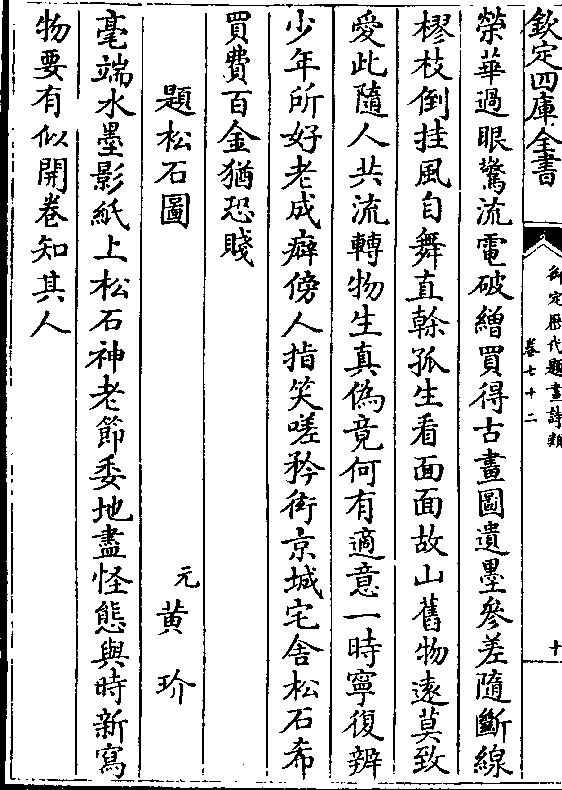 欽定四庫全書
御定歷代題畫詩類
卷七十二
十
榮華過眼驚流電破繒買得古畫圖遺墨參差隨斷線
樛枝倒挂風自舞直榦孤生看面面故山舊物遠莫致
愛此隨人共流轉物生真偽竟何有適意一時寧復辨
少年所好老成癖傍人指笑嗟矜衒京城宅舍松石希
買費百金猶恐賤
題松石圖
元黄玠
毫端水墨影紙上松石神老節委地盡怪態與時新寫
物要有似開卷知其人